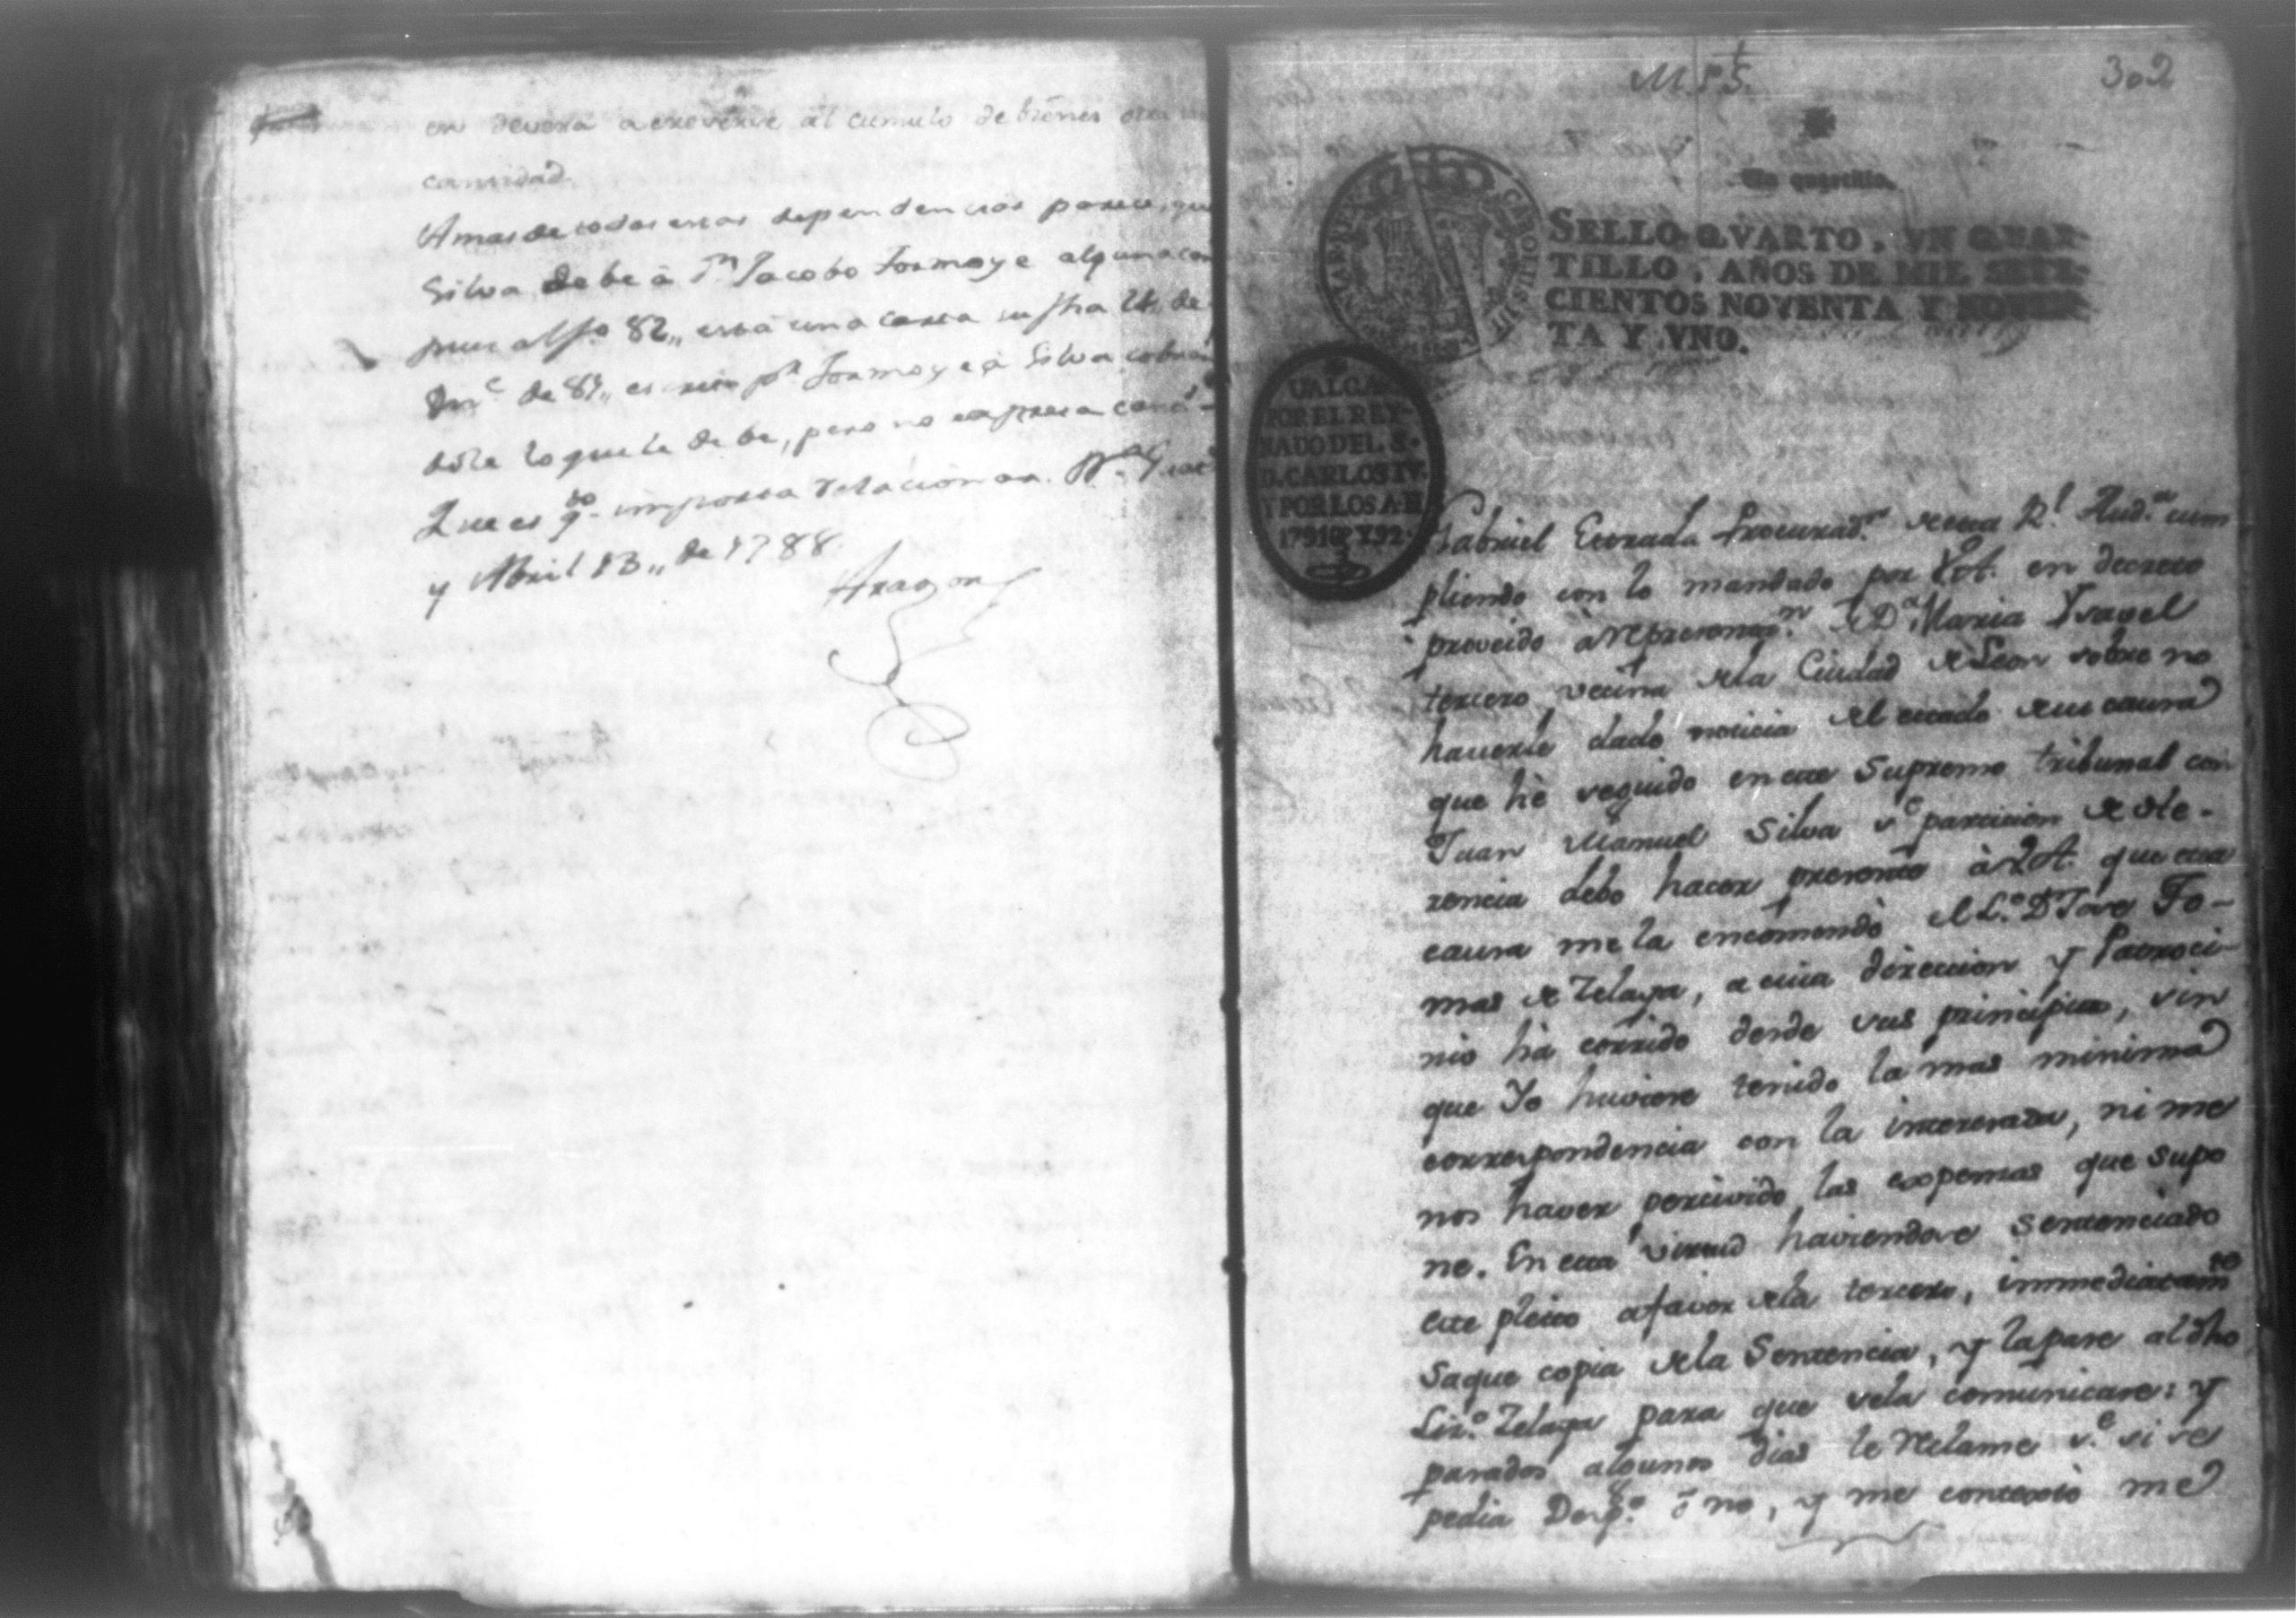 en devera agregarse al cumulo de bienes otra
cantidad.
Amas de todas estas dependencias parece, que
Silva debe à Dn. Jacobo Formaye alguna
pues al fo. 82,, està una carta su fha 24 de
de 87,, escrita pr. Formaye à Silva cobran
dole lo que le debe, pero no expresa canti-
Que es qto. importa relacionar.
y Abril 13,, de 1788.
Aragon
M. P. S.
302
Un quartillo.
SELLO QVARTO, VN QVAR-
TILLO, AÑOS DE MIL SETE-
CIENTOS NOVENTA Y NOVEN-
TA Y VNO.
CAROLUS IIII
VALGA
POR EL REY-
NADO DEL S.
D. CARLOS IV.
Y POR LOS A. D
1791 Y 92.
Gabriel Estrada Procurador. de esta Rl. Auda. cum
pliendo con lo mandado por V.A. en decreto
proveido à representon. de Da. Maria Ysavel
tercero vecina de la Ciudad de Leon sobre no
haverle dado noticia del estado de su causa
que hè seguido en este Supremo tribunal con
Juan Manuel Silva se. particion de He-
rencia debo hacer presente à V.A. que esta
causa me la encomendò el Lo. Dn. Jose To-
mas de Zelaya, a cuia direccion y Patroci-
nio hà corrido desde sus principios, sin
que Yo huviese tenido la mas minima
correspondencia con la interesada, ni me
nos haver percivido las expensas que supo
ne. En esta virtud haviendose sentenciado
este pleito a favor de la tercero, immediatamte
Saque copia de la Sentencia, y la pase al dho
Lizo. Zelaya para que se la comunicase: y
pasados algunos dias le reclame se. si se
pedia Despo. ò no, y me contextò me